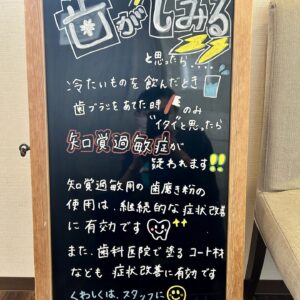 歯がしみる
と思ったら....
冷たいものを飲んだとき
歯ブラシをあてた時 のみ
"イタイ"と思ったら
知覚過敏症が
疑われます!!
知覚過敏用の歯磨き粉の
使用は、継続的な症状改善
に有効です
また、歯科医院で塗るコート材
なども 症状改善に有効です
くわしくは、スタッフに